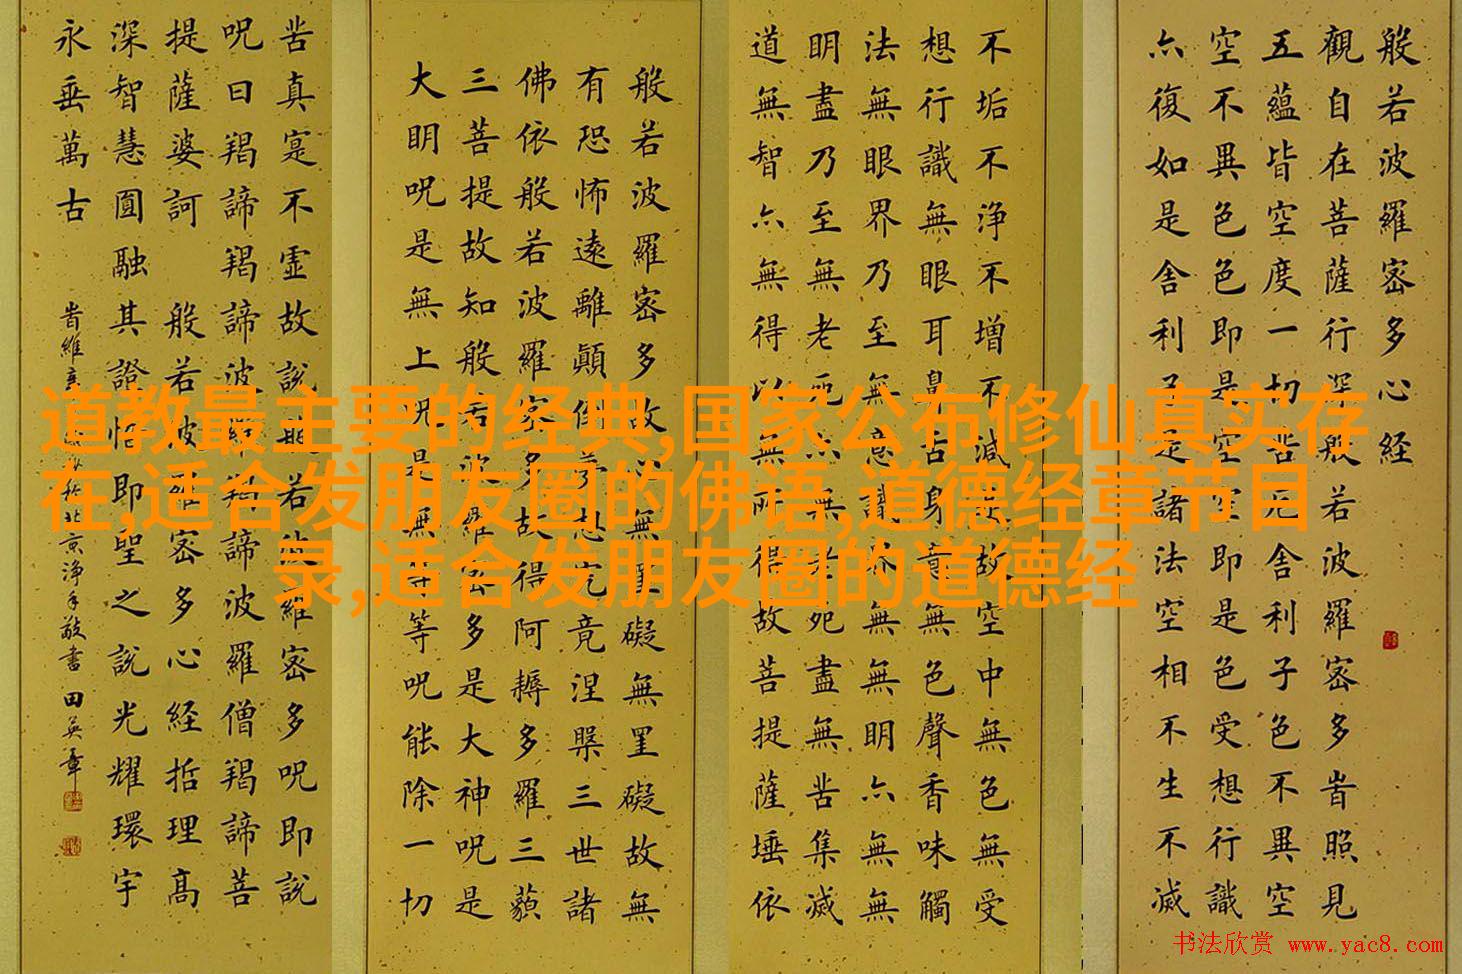 道教最主要的经典,国家公布修仙真实存
在,适合发朋友圈的佛语,道德经章节目
录,适合发朋友圈的道德经
般若波羅密多心経
觀自在菩薩行深般若波羅密多旹照見
五蘊皆空度一切苦厄舍利子色不異空
空不異色色即是空空即是色受想行識
亦復如是舍利子是諸法空相不生不滅
不垢不浄不增不減是故空中無色無受
想行識無眼耳鼻舌身意無色聲香味觸
法無眼界乃至無意識界無無明亦無無
明盡乃至無老死亦無老死盡無苦集滅
道無智亦無得以無所得故菩提薩埵依
般若波羅密多故心無罣礙無罣礙故無
有恐怖遠離顛倒夢想究竟涅槃三世諸
佛依般若波羅密多故得阿耨多羅三藐
三菩提故知般若波羅密多是大神呪是
大明呪是無上呪是無等等呪能除一切
苦真寔不虛故說般若波羅密多呪即說
呪曰羯諦羯諦波羅羯諦波羅僧羯諦菩
提薩婆訶 般若波羅密多心経括理高
深智慧圓融其證悟即聖之說光耀環宇
永垂萬古
旹維京浄手敬書 田英章
书法欣赏 www.yac8.com